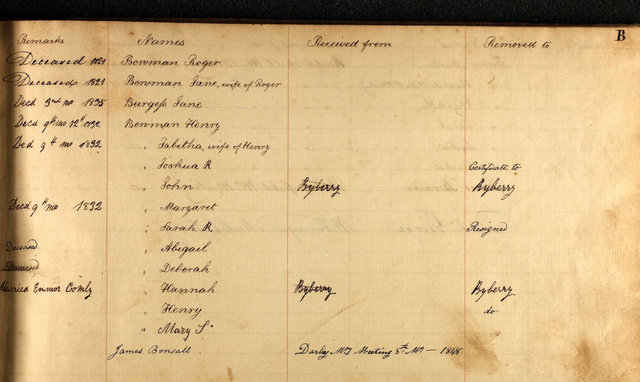 B
Remarks Names Received from Removed to
Deceased 1821 Bowman Roger
Deceased 1821 Bowman Jane, wife of Roger
Decd 3rd mo 1835 Burgess Jane
Decd 9th mo 12th 1832 Bowman Henry
Decd 9th mo 1832 " Tabitha, wife of Henry
" Joshua R Certificate to
" John Byberry Byberry
Decd 9th mo 1832 " Margaret
" Sarah R Resigned
Deceased " Abigail
Deceased " Deborah
Married Emmor Comly " Hannah Byberry Byberry
" Henry do
" Mary S.
James Bonsall Darby Mo Meeting 8th Mo — 1848